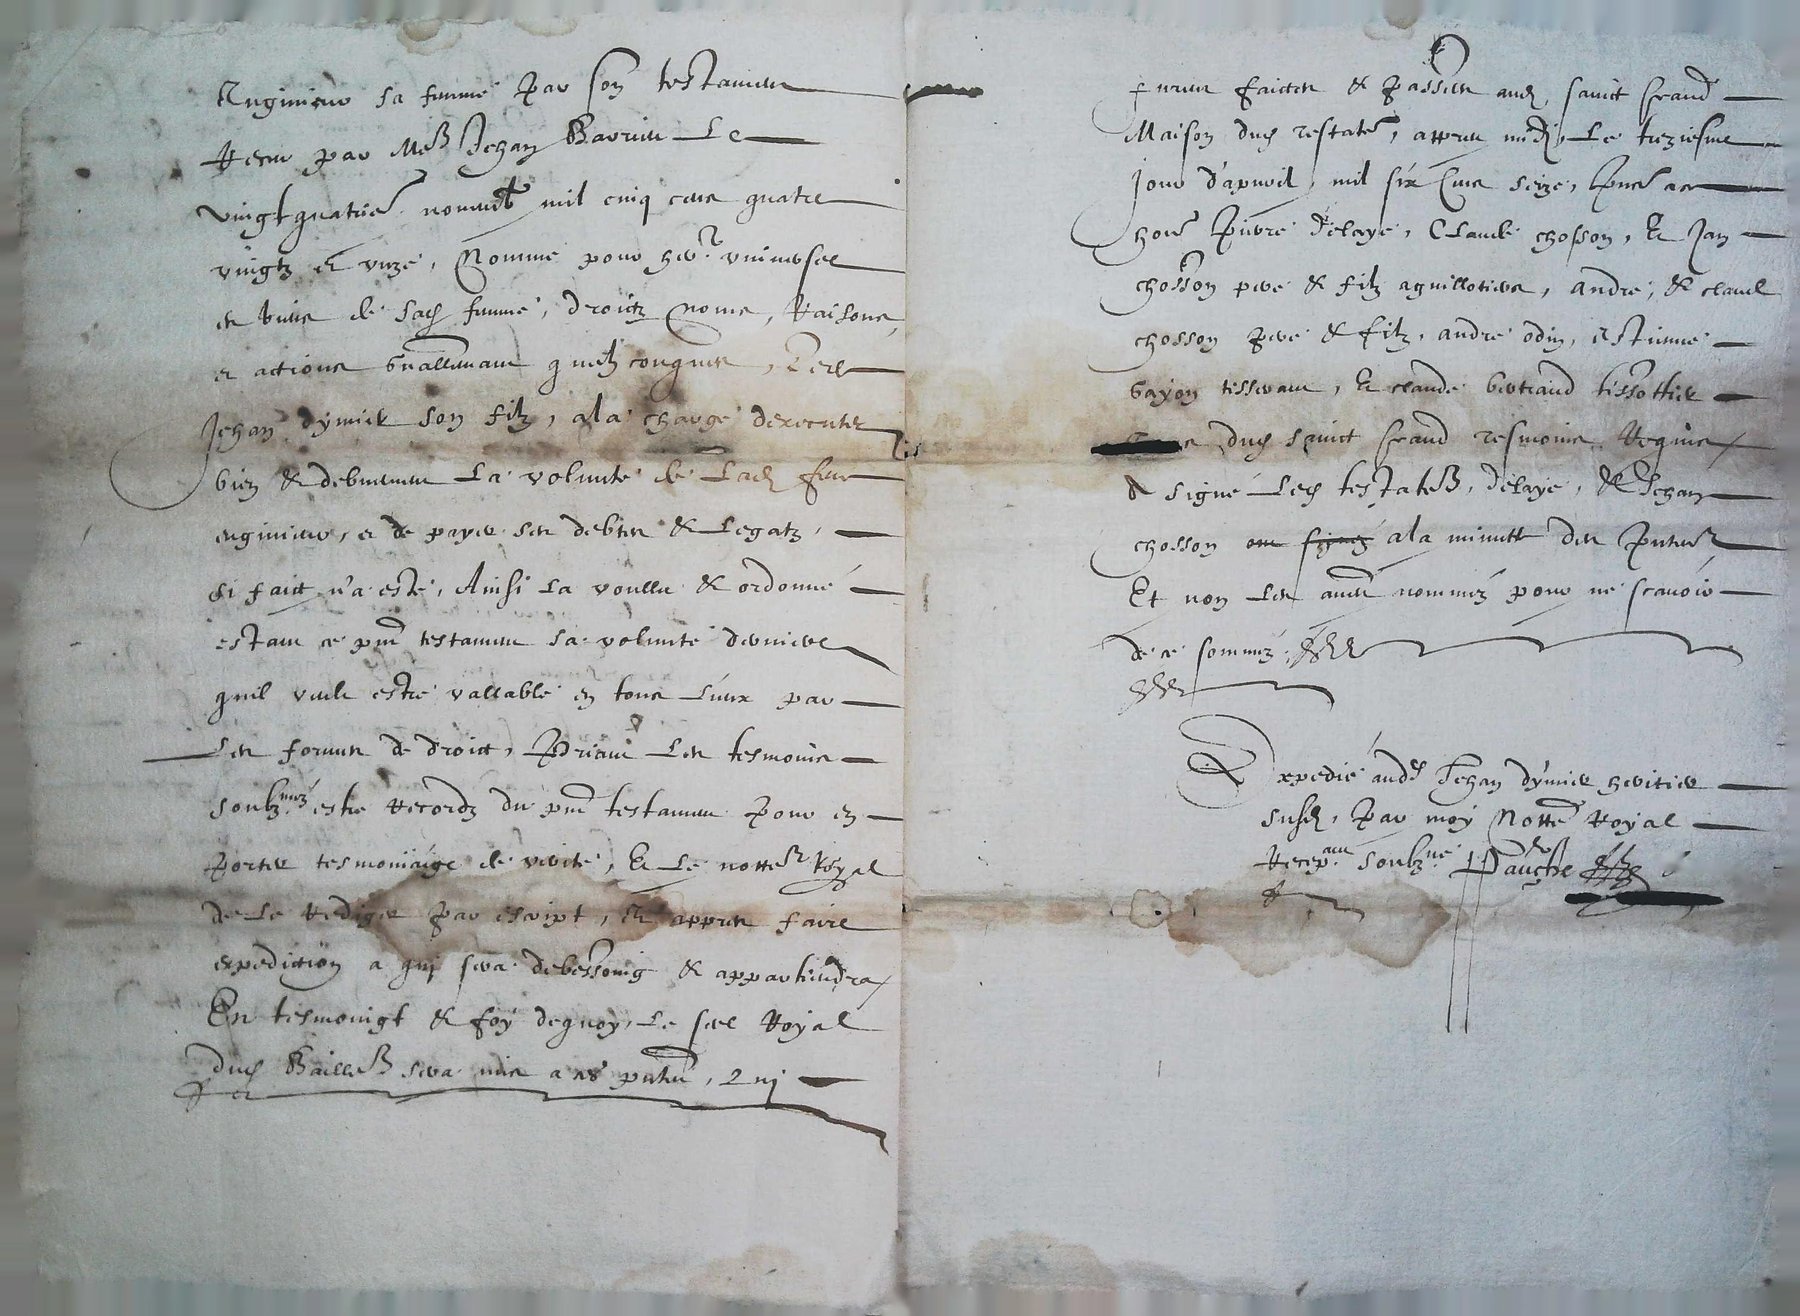 Enginieur sa femme par son testament
Receu par Mes Jehan Baurien Le
vingtquatrie nouemb mil cinq cens quatre
vingtz et unze, Nomme pour her uniuersel
en biens de sad femme, droictz noms, Raisons,
et actions gnallement quelz conques,
Jehan dymier son filz, a la charge dexecuter
bien & debuement La volunte de Lad feue
enginieur, et de payer ses debtes & Legatz,
si faict n'a este, Ainsi La voullu & ordonné
estant ce pnt testament sa volunte derniere
quil veult estre vallable en tous Lieux par
Les formes de droict, Priant Les tesmoins
soubznez estre Recordz du pnt testament pour en
porter tesmoniaige de verite, Et Le notte Royal
de Le Rediger par escript, Et appres faire
expediction a qui sera debessoing & appartiendra
En tesmoingt & foy dequoy, Le seel Royal
dud Bailla sera mis a ces pntes, Qui
furent faictes & passees aud sainct
Maison dud testate, appres midy Le treziesme
Jour d'apuril, mil six cens seize, pnt ac
hore pierre delaye, Claude chosson, Et Jan
chosson pere & filz aguillotiers, andre, & claude
chosson pere & filz, andre odin, estienne
Gayon tisserant, Et claude bertrand tissottier
dud sainct tesmoins Requis
A signé Led testate, delaye, & Jehan
chosson a la minutte des pntes
Et non Les autres nommez pour ne scauoir
de ce sommez
Expedié aud Jehan dymier heritier
susd, par moy Notte Royal
Recepant soubzne Pauche